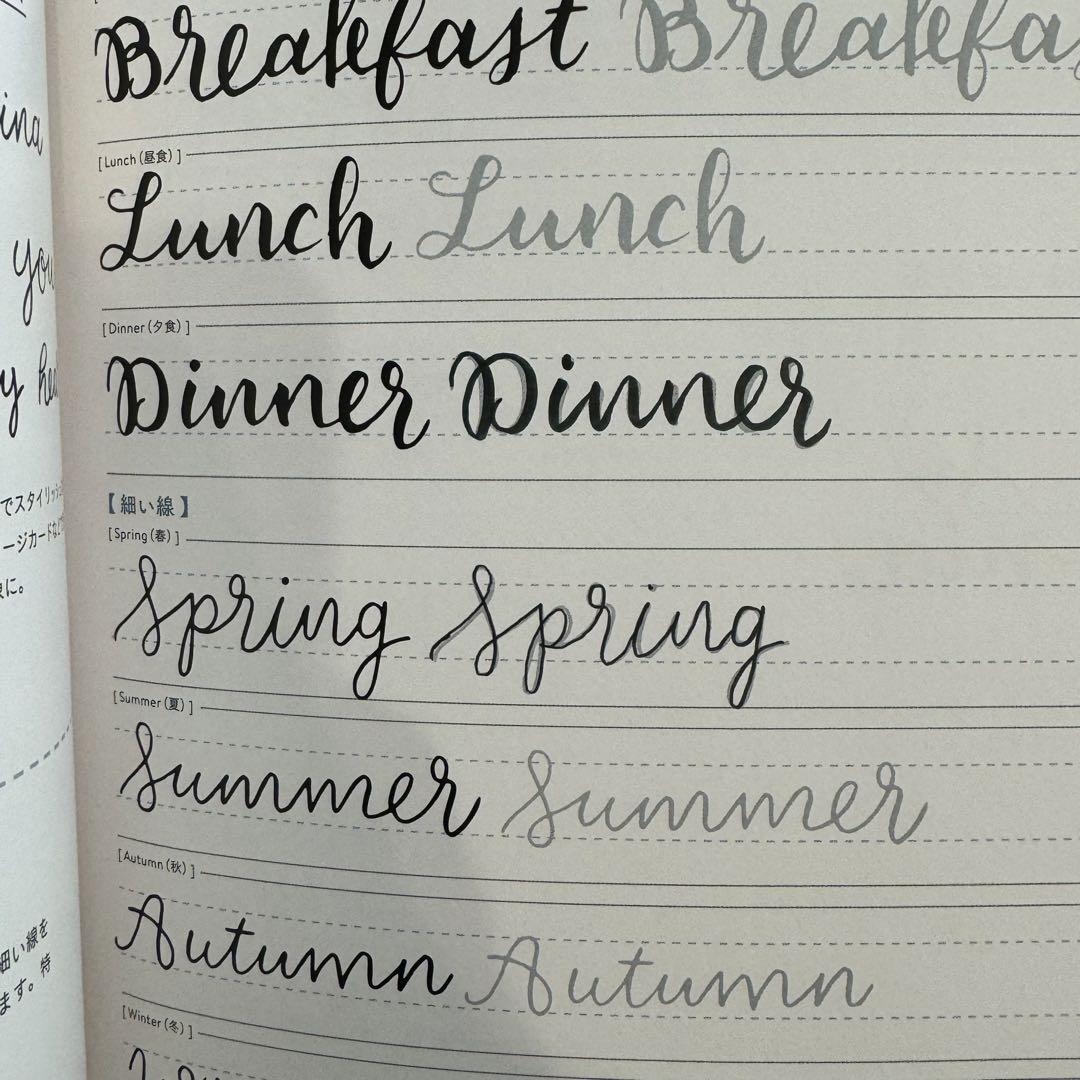 Breakfast Breakfa
[Lunch(昼食)]
Lunch Lunch
[Dinner(夕食)]
Dinner Dinner
【細い線】
[Spring(春)]
Spring Spring
[Summer(夏)]
Summer Summer
[Autumn(秋)]
Autumn Autumn
[Winter(冬)]
ing
you
y
でスタイリッシュ
ージカードなど
に。
細い線を
ます。特